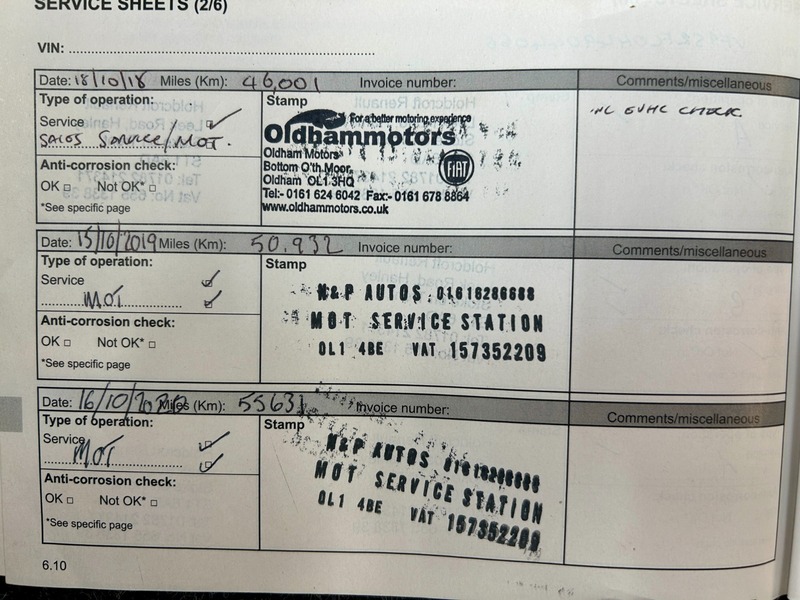 SERVICE SHEETS (2/6)
VIN:
Date: 18/10/18 Miles (Km): 46,001 Invoice number:
Comments/miscellaneous
Type of operation:
Service
SALES Service/MOT.
Anti-corrosion check:
OK Not OK*
*See specific page
Stamp
For a better motoring experience
Oldhammotors
Oldham Motors
Bottom O'th Moor,
Oldham OL1 3HQ
FIAT
Tel:- 0161 624 6042 Fax:- 0161 678 8864
www.oldhammotors.co.uk
INC EVHC CHECK.
Date: 15/10/2019 Miles (Km): 50.932 Invoice number:
Comments/miscellaneous
Type of operation:
Service
MOT
Anti-corrosion check:
OK Not OK*
*See specific page
Stamp
M&P AUTOS 01616286688
MOT SERVICE STATION
OL1 4BE VAT 157352209
Date: 16/10/2020 Miles (Km): 55631 Invoice number:
Comments/miscellaneous
Type of operation:
Service
MOT
Anti-corrosion check:
OK Not OK*
*See specific page
Stamp
M&P AUTOS 01616286688
MOT SERVICE STATION
OL1 4BE VAT 157352209
6.10